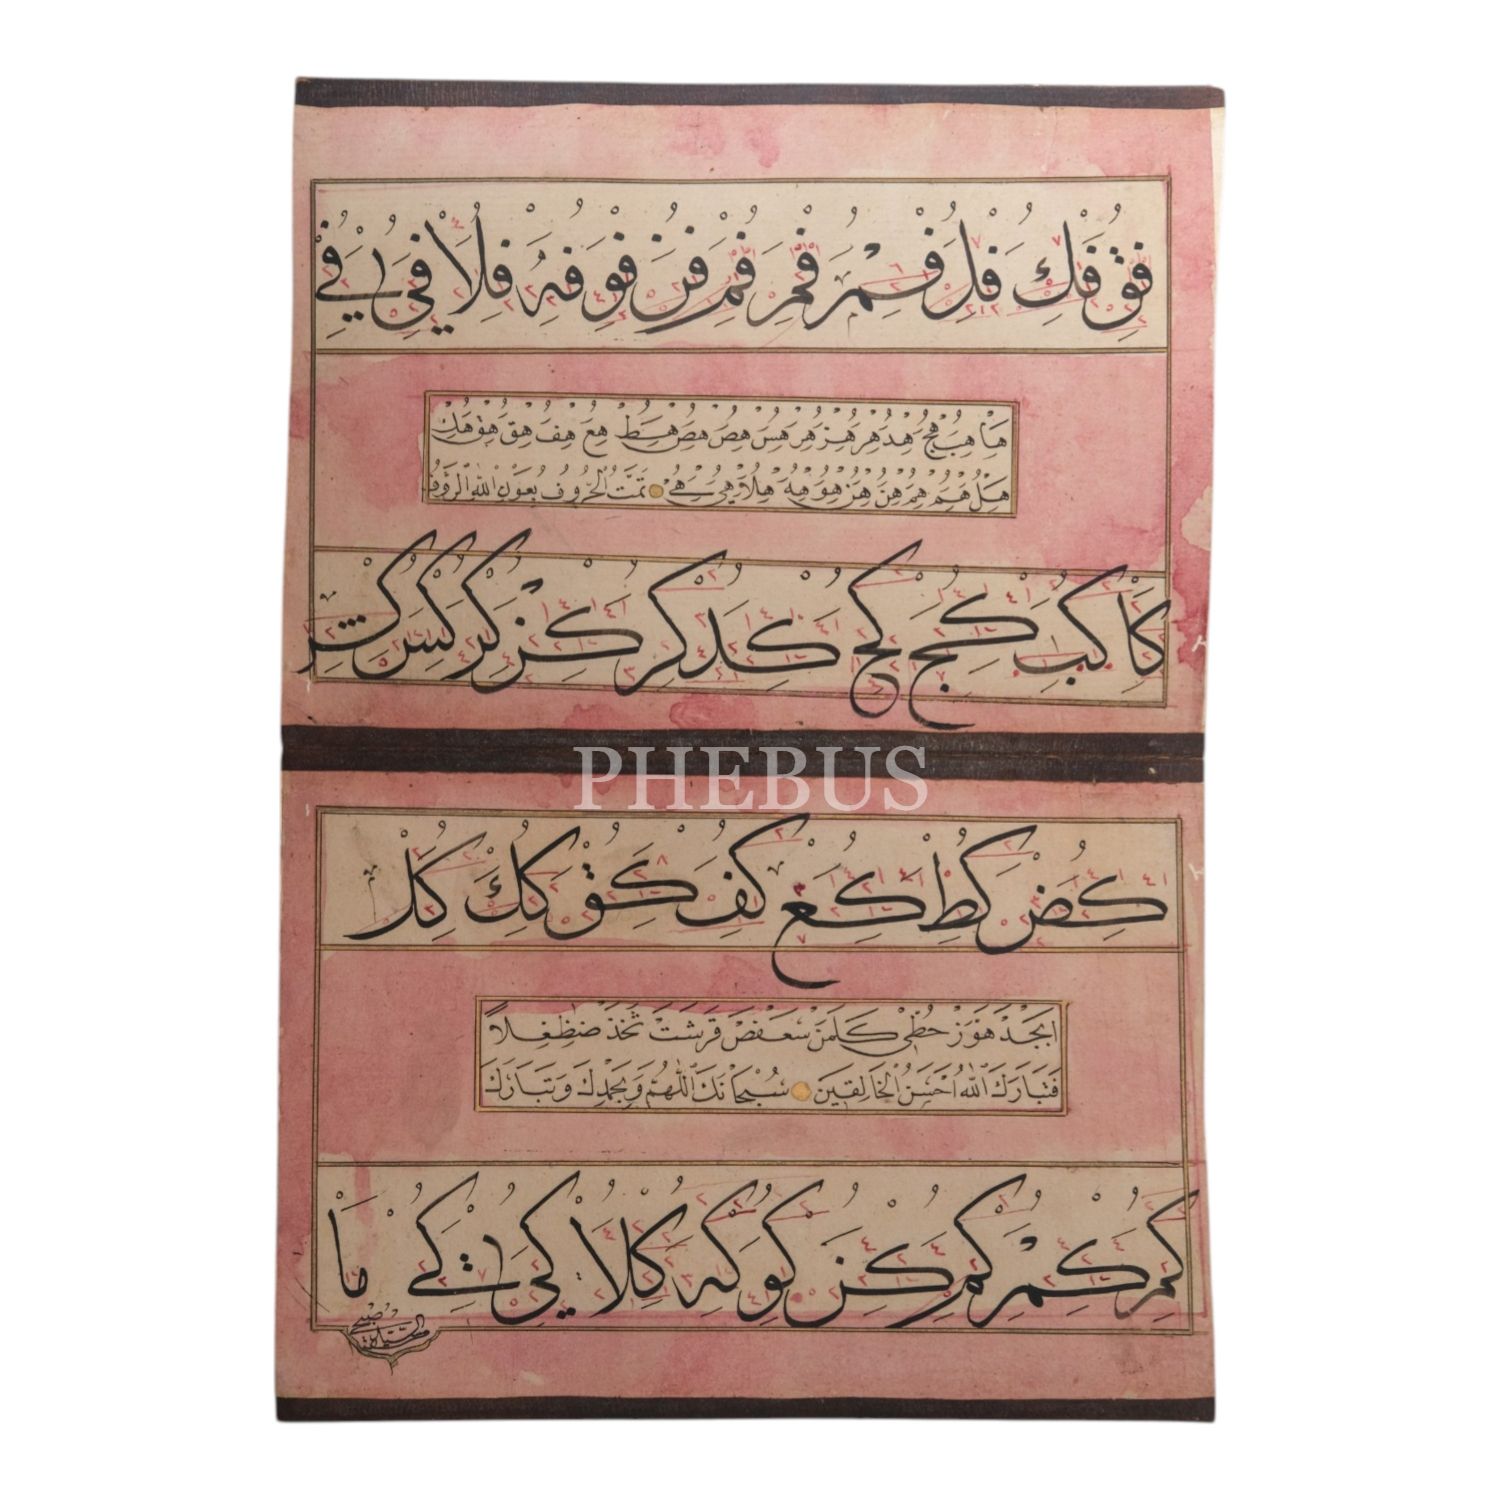 فق فك فل فم فمر فم فن فو فه فلا في في
ها هب هج هد هر هز هر هس هص هص هط هع هف هق هو هك
هل هم هم هن هن هو هه هلا هي هے تمت الحروف بعون الله الرؤف
كا كب كج كج كد كر كز كر كس كش
PHEBUS
كض كط كع كف كق كك كل
ابجد هوز حطي كلمن سعفص قرشت ثخذ ضظغلا
فتبارك الله احسن الخالقين سبحانك اللهم وبحمدك وتبارك
كم كم كم كن كو كه كلا كي كے ما